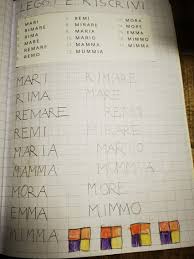 LEGGI E RISCRIVI
MARI REMI MORA
RIMARE RIMARE MORE
RIMA MARIA EMMA
MARE MARIO MIMMO
REMARE MAMMA MIMMA
REMO MUMMIA
MARI RIMARE
RIMA MARE
REMARE REMO
REMI RIMARE
MARIA MARIO
MAMMA MUMMIA
MORA MORE
EMMA MIMMO
MIMMA